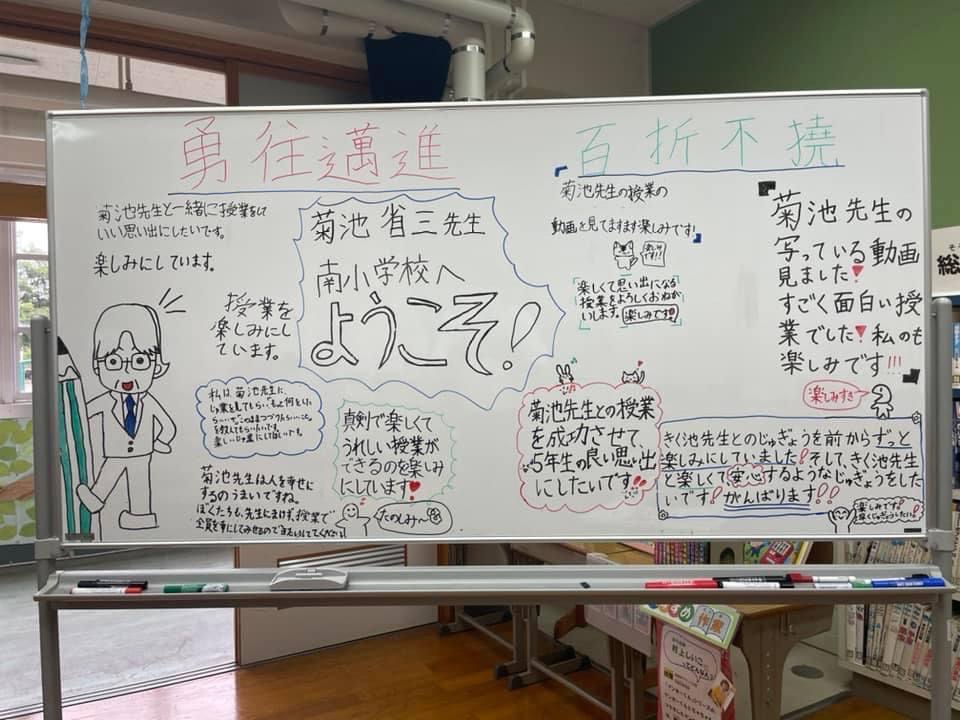 勇往邁進
百折不撓
菊池先生と一緒に授業をして
いい思い出にしたいです。
楽しみにしています。
授業を
楽しみにし
ています。
菊池 省三先生
南小学校へ
ようこそ!
菊池先生の授業の
動画を見てますます楽しみです!
楽しくて思い出になる
授業をよろしくおねが
いします。楽しみです!
菊池先生の
写っている動画
見ました!
すごく面白い授
業でした!私のも
楽しみです!!!
楽しみすぎ
私は、菊池先生に
楽しい授業にしてほしいです。
真剣で楽しくて
うれしい授業が
できるのを楽しみ
にしています
たのしみ〜
菊池先生は人を幸せに
するのうまいですね。
ぼくたちも、先生にまけず、授業で
菊池先生との授業
を成功させて、
5年生の良い思い出
にしたいです!!
きく池先生とのじゅぎょうを前からずっと
楽しみにしていました!そして、きく池先生
と楽しくて安心するようなじゅぎょうをした
いです!がんばります!!
楽しみです!
総
作家
村上しいこ